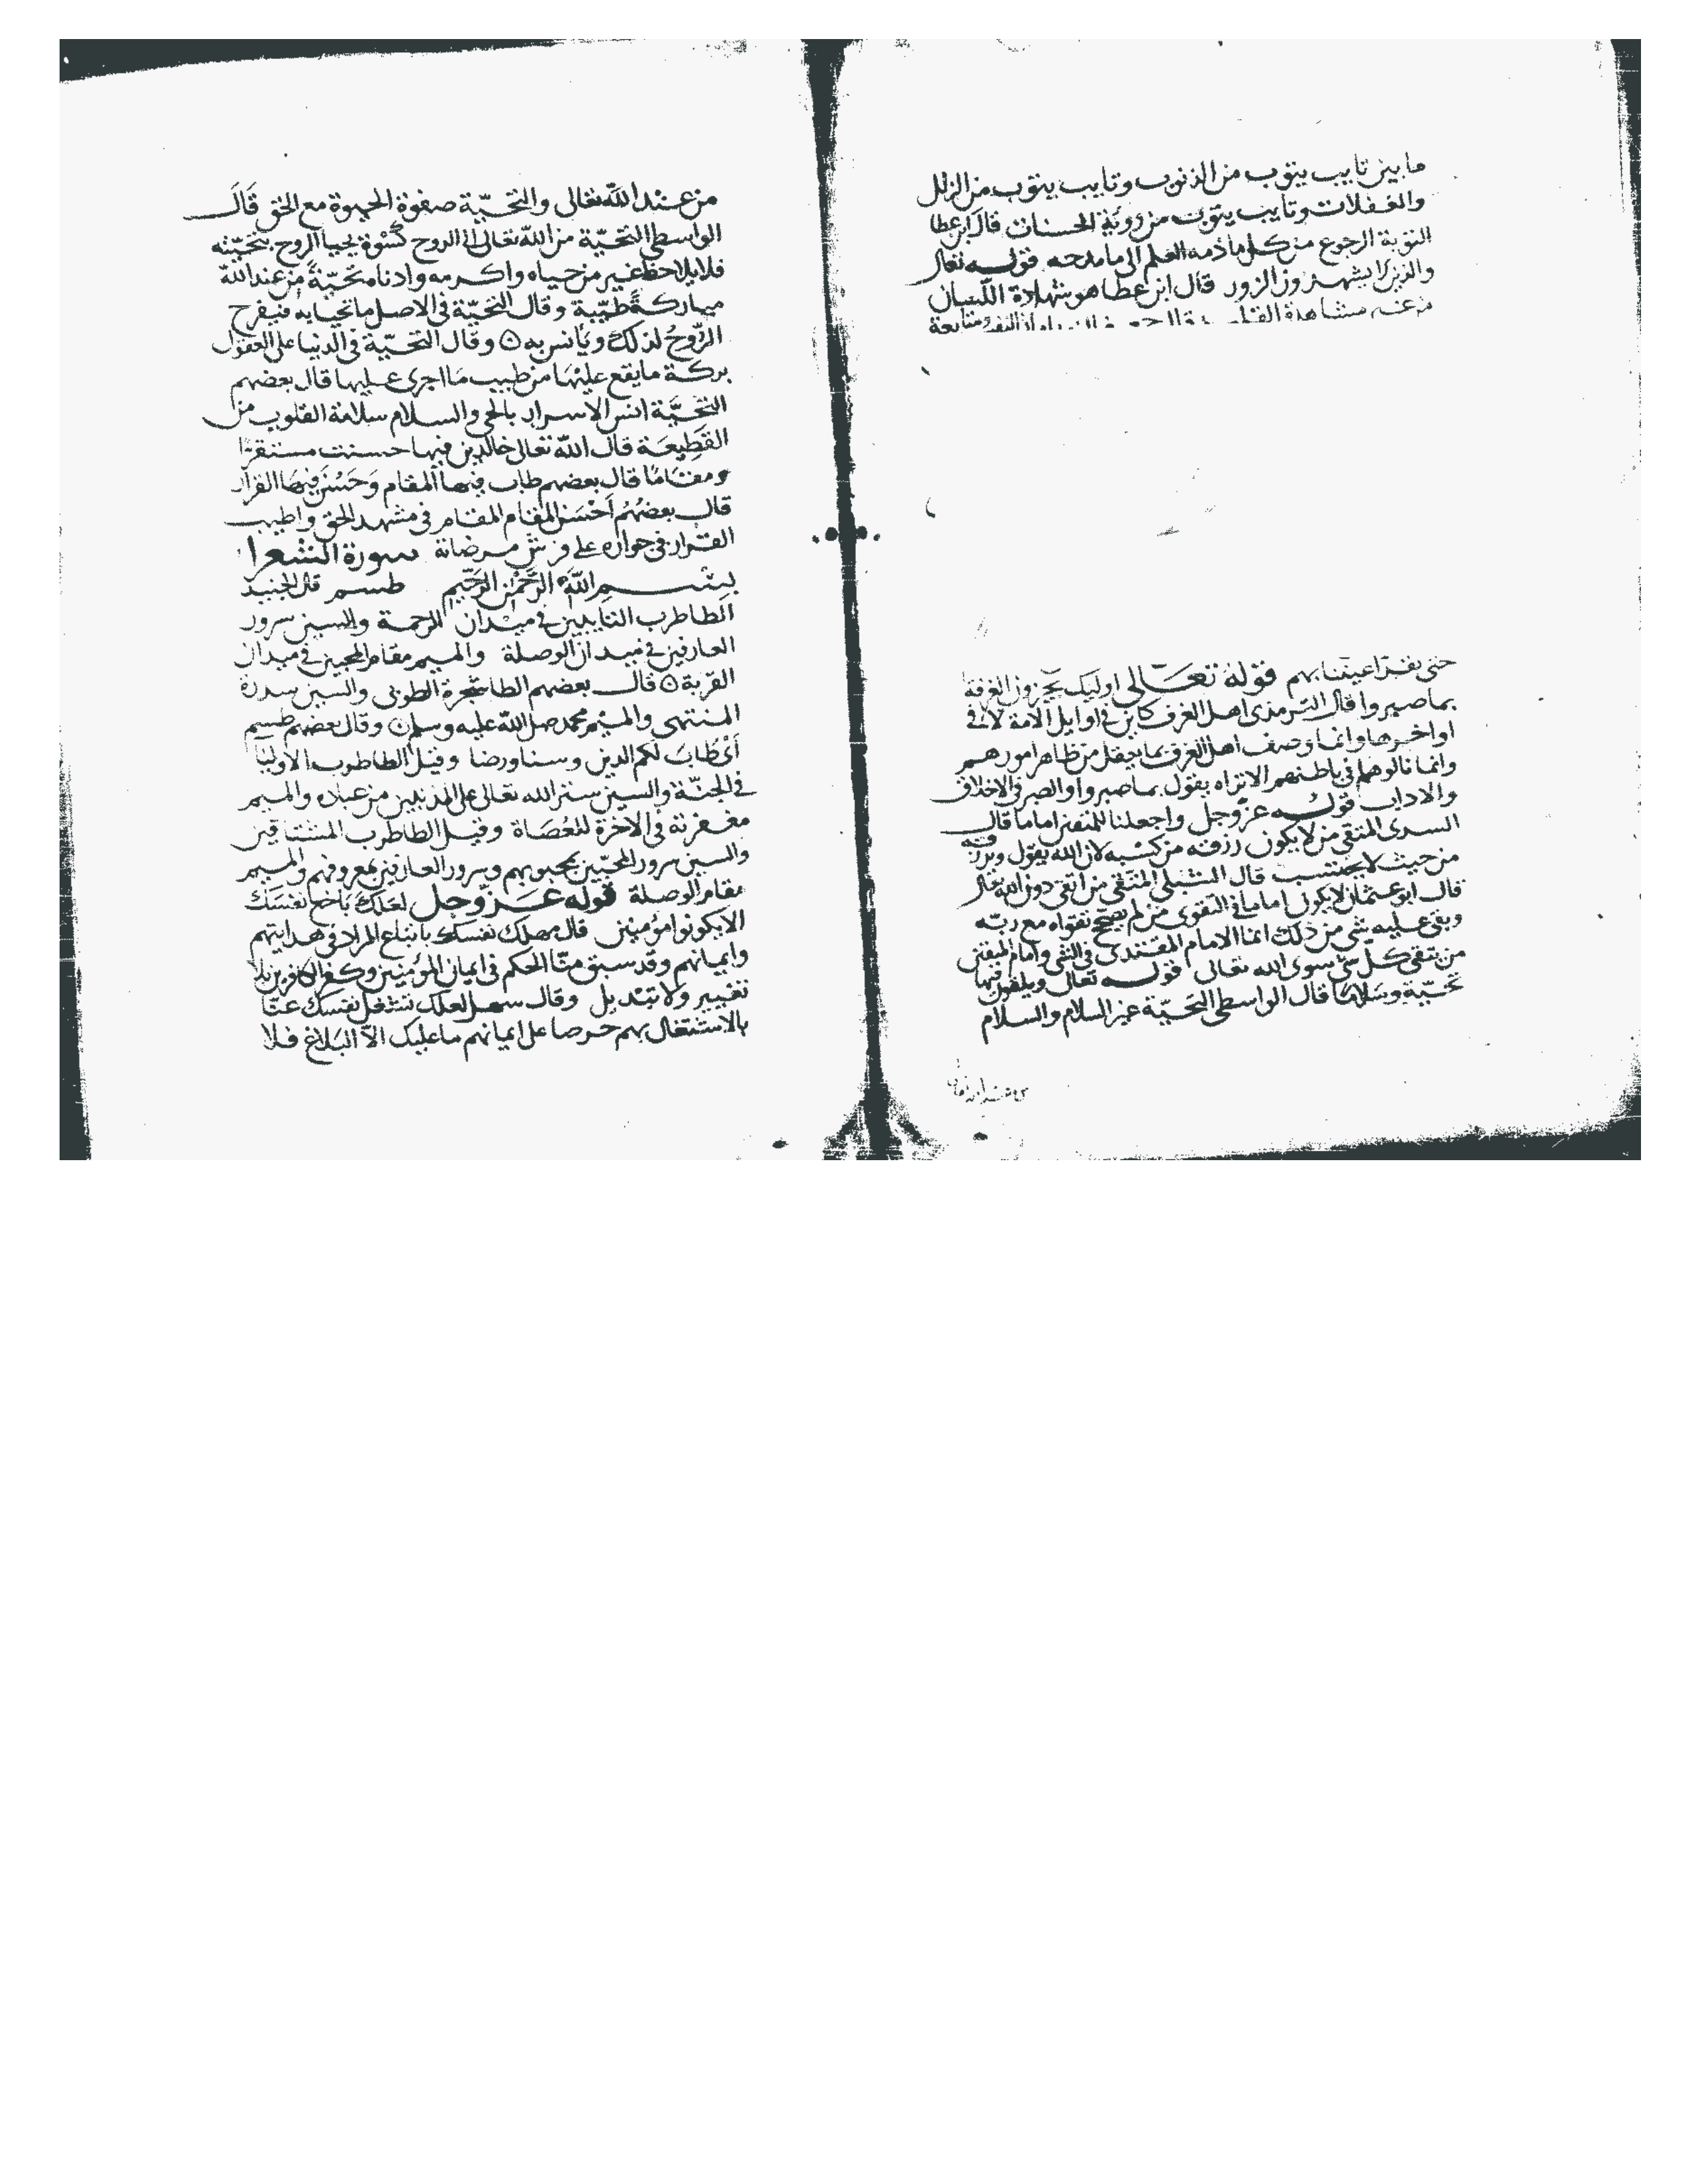 ما بين تايب يتوب من الذنوب وتايب يتوب من الزلل
والغفلات وتايب يتوب من روية الحسنات قال ابن عطا
التوبة الرجوع من كل ما ذمه العلم الى ما مدحه قوله تعالى
والذين لا يشهدون الزور قال ابن عطا هو شهادة اللسان
من غير مشاهدة القلب
حتى تقر اعيننا بهم قوله تعالى اوليك يجزون الغرفة
بما صبروا قال الترمذى اهل الغرف كاين في اوايل الامة لا في
اواخرها وانما وصف اهل الغرف بما يعقل من ظاهر امورهم
وانما نالوها في باطنهم الا تراه يقول بما صبروا والصبر في الاخلاق
والاداب قوله عز وجل واجعلنا للمتقين اماما قال
السدى المتقى من لا يكون رزقه من كسبه لان الله يقول ويرزقه
من حيث لا يحتسب قال الشبلى المتقى من اتقى دون الله تعالى
قال ابو عثمان لا يكون اماما في التقوى من لم يصحح تقواه مع ربّه
وبقى عليه شي من ذلك انما الامام المقتدى في الشي وامام المتقين
من يتقى كلّ شي سوى الله تعالى قوله تعالى ويلقون فيها
تحيّة وسلاما قال الواسطى التحيّة غير السلام والسلام
من عند الله تعالى والتحيّة صفوة الحيوة مع الحق قال
الواسطى التحيّة من الله تعالى الى الروح كسوة يحيا الروح بتحيّته
فلا يلاحظ غير من حياه واكرمه وادناه تحيّةً من عند الله
مباركةً طيّبة وقال التحيّة في الاصل ما تحيا به فيفرح
الرّوح لذلك ويانس به وقال التحيّة في الدنيا على العقول
بركة ما يقع عليها من طيب ما اجرى عليها قال بعضهم
التحيّة انس الاسرار بالحى والسلام سلامة القلوب من
القطيعة قال الله تعالى خالدين فيها حسنت مستقرّا
ومقاما قال بعضهم طاب فيها المقام وحسن فيها القرار
قال بعضهم احسن المقام المقام في مشهد الحق واطيب
القرار في جواره على فرش مرضاته سورة الشعرا
بسم الله الرّحمن الرّحيم طسم قال الجنيد
الطا طرب التايبين في ميدان الرحمة والسين سرور
العارفين في ميدان الوصلة والميم مقام المحبين في ميدان
القربة قال بعضهم الطا شجرة الطوبى والسين سدرة
المنتهى والميم محمد صلى الله عليه وسلم وقال بعضهم طسم
اى طاب لكم الدين وسنا ورضا وقيل الطا طرب الاوليا
في الجنّة والسين ستر الله تعالى على المذنبين من عباده والميم
مغفرته في الاخرة للعصاة وقيل الطا طرب المشتاقين
والسين سرور المحبّين بمحبوبهم وسرور العارفين بمعروفهم والميم
مقام الوصلة قوله عز وجل لعلك باخع نفسك
الا يكونوا مؤمنين قال مهلك نفسك باتباع المراد في هدايتهم
وايمانهم وقد سبق منّا الحكم في ايمان المؤمنين وكفر الكافرين بلا
تغيير ولا تبديل وقال سهل لعلك تشغل نفسك عنّا
بالاشتغال بهم حرصا على ايمانهم ما عليك الا البلاغ فلا